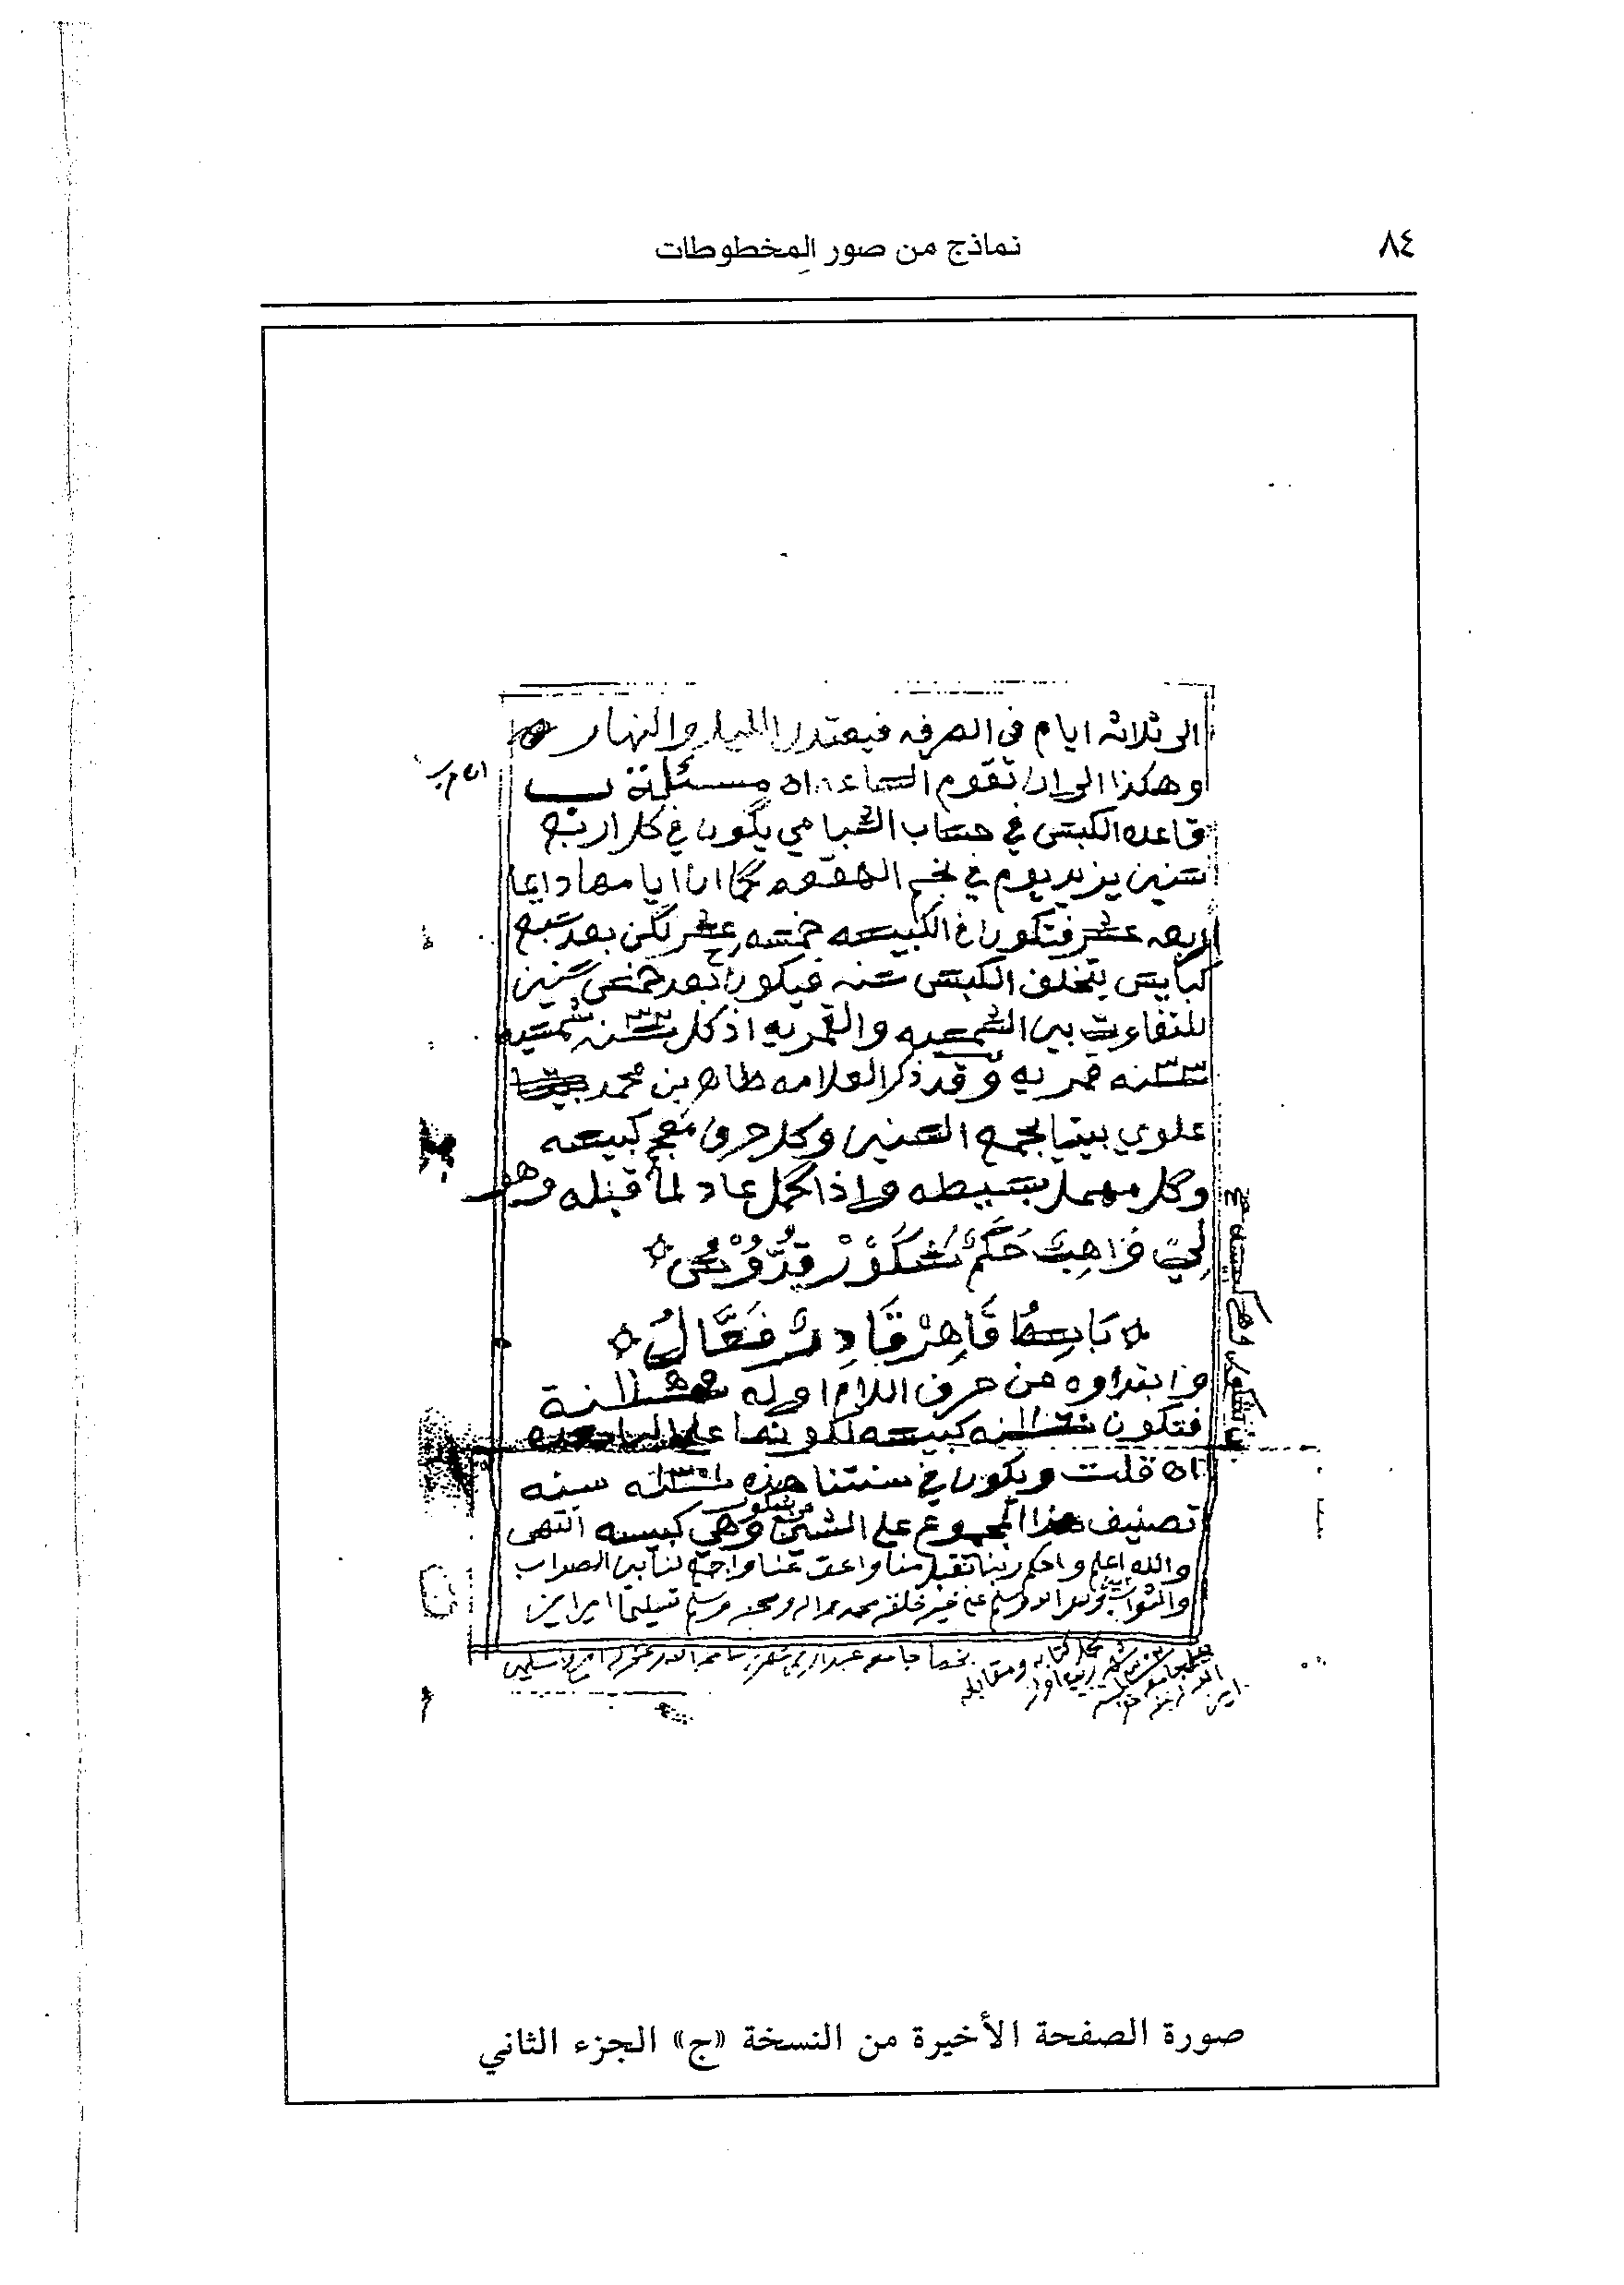 ٨٤
نماذج من صور المخطوطات
الى ثلاثة ايام في الصرفه فيعتدل الليل والنهار
وهكذا الى ان تقوم الساعة اه مسئلة
قاعدة الكبس في حساب الشبامي يكون في كل اربع
سنين يزيد يوم في نجم الهقعه كما ان ايامها دايما
اربعه عشر فتكون في الكبيسه خمسه عشر لكن بعد سبع
كبايس يتخلف الكبس سنه فيكون بعد خمس سنين
للتفاوت بين الشمسيه والقمريه اذ كل ٣٢ سنه شمسيه
٣٣ سنه قمريه وقد ذكر العلامه طاهر بن محمد
علوي بيتا يجمع السنين وكل حرف معجم كبيسه
وكل مهمل بسيطه واذا كمل عاد لما قبله وهو
لي فراهب حكم شكور قدوس محي
باسط قاهر قادر فعال
وابتداوه من حرف اللام اوله سنة
فتكون سنه كبيسه لكونها على
اه قلت ويكون في سنتنا هذه سنه
تصنيف هذا المجموع على الشين من شكور وهي كبيسه انتهى
والله اعلم واحكم ربنا تقبل منا واعف عنا
صورة الصفحة الأخيرة من النسخة «ج» الجزء الثاني